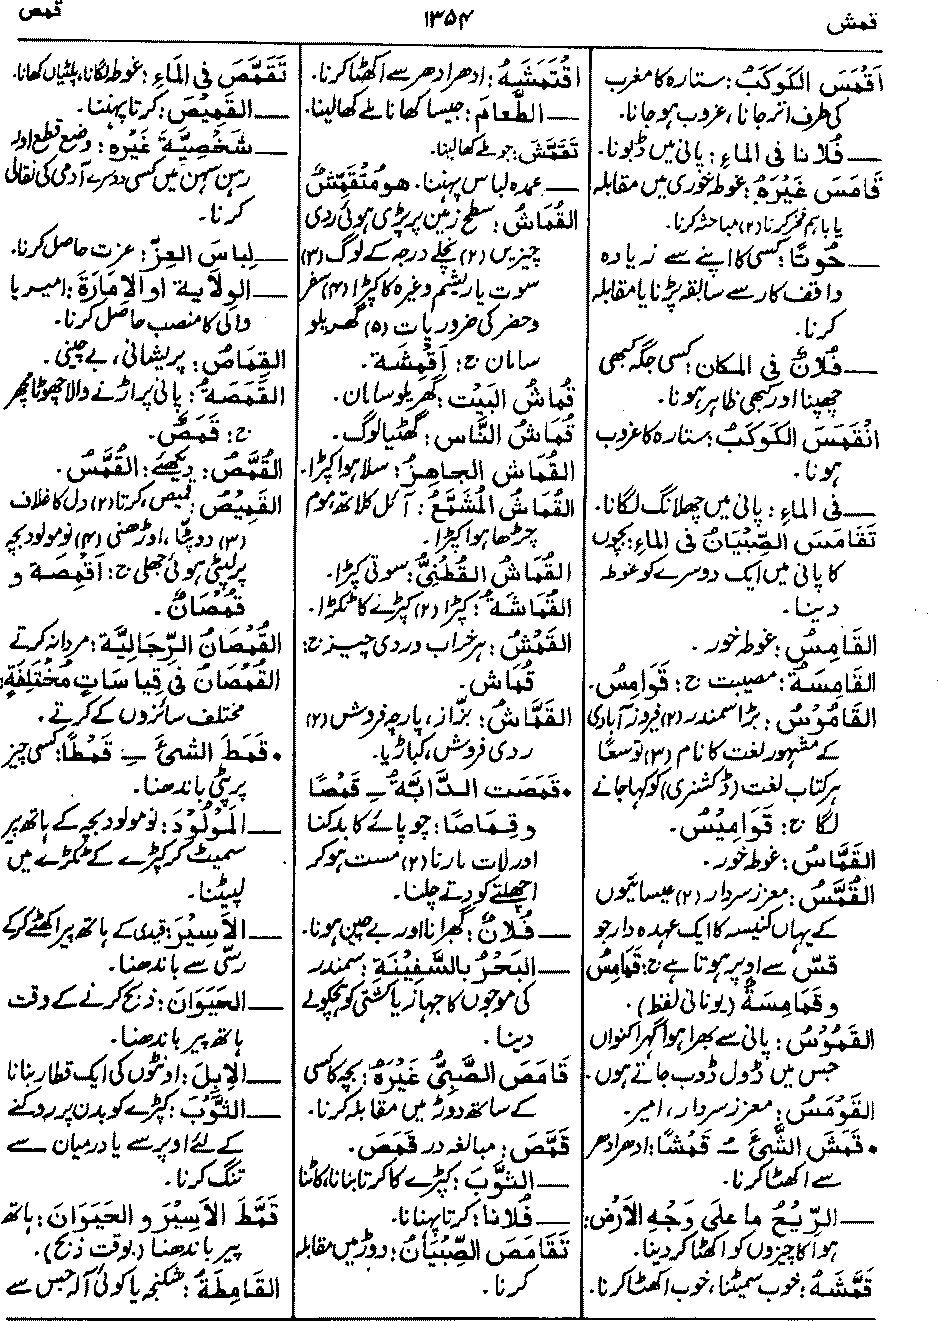 قمش
۱۳۵۴
قمص
اَقْمَسَ الكَوكَبُ: ستارہ کا مغرب
کی طرف اتر جانا، غروب ہو جانا۔
— فُلَانًا فی المَاءِ: پانی میں ڈبونا۔
قَامَسَ غَيْرَهُ: غوطہ خوری میں مقابلہ
یا باہم فخر کرنا (۲) مباحثہ کرنا۔
— حُوتًا: کسی کا اپنے سے زیادہ
واقف کار سے سابقہ پڑنا یا مقابلہ
کرنا۔
— فُلَانٌ فی المکَان: کسی جگہ کبھی
چھپنا اور کبھی ظاہر ہونا۔
انْقَمَسَ الكَوكَبُ: ستارہ کا غروب
ہونا۔
— فی المَاءِ: پانی میں چھلانگ لگانا۔
تَقَامَسَ الصِّبْيَانُ فی المَاءِ: بچوں
کا پانی میں ایک دوسرے کو غوطہ
دینا۔
القَامِسُ: غوطہ خور۔
القَامِسَةُ: مصیبت ج: قَوَامِسُ۔
القَامُوْسُ: بڑا سمندر (۲) فیروز آبادی
کے مشہور لغت کا نام (۳) توسعًا
ہر کتاب لغت (ڈکشنری) کو کہا جانے
لگا ج: قَوَامِيْسُ۔
القَمَّاسُ: غوطہ خور۔
القُمَّسُ: معزز سردار (۲) عیسائیوں
کے یہاں کنیسہ کا ایک عہدہ دار جو
قسّ سے اوپر ہوتا ہے ج: قَمَامِسُ
و قَمَامِسَةٌ (یونانی لفظ)۔
القَمُوْسُ: پانی سے بھرا ہوا گہرا کنواں
جس میں ڈول ڈوب جاتے ہوں۔
القَوْمَسُ: معزز سردار، امیر۔
• قَمَشَ الشَّیْءَ ـُ قَمْشًا: ادھر ادھر
سے اکھٹا کرنا۔
— الرِّيْحُ ما علیٰ وَجْهِ الأَرْضِ:
ہوا کا چیزوں کو اکھٹا کر دینا۔
قَمَّشَهُ: خوب سمیٹنا، خوب اکھٹا کرنا۔
اقْتَمَشَهُ: ادھر ادھر سے اکھٹا کرنا۔
— الطَّعامَ: جیسا کھانا ملے کھا لینا۔
تَقَمَّشَ: جو ملے کھا لینا۔
— عمدہ لباس پہننا۔ هو مُتَقَمِّشٌ
القُمَاشُ: سطح زمین پر پڑی ہوئی ردی
چیزیں (۲) نچلے درجہ کے لوگ (۳)
سوت یا ریشم وغیرہ کا کپڑا (۴) سفر
و حضر کی ضروریات (۵) گھریلو
سامان ج: اَقْمِشَة۔
قُمَاشُ البَيْت: گھریلو سامان۔
قُمَاشُ النَّاس: گھٹیا لوگ۔
القُمَاش الجاهِزُ: سلا ہوا کپڑا۔
القُمَاشُ المُشَمَّعُ: آئل کلاتھ، موم
چڑھا ہوا کپڑا۔
القُمَاشُ القُطْنِیُّ: سوتی کپڑا۔
القُمَاشَةُ: کپڑا (۲) کپڑے کا ٹکڑا۔
القَمْشُ: ہر خراب و ردی چیز ج:
قُمَاش۔
القَمَّاشُ: بزّاز، پارچہ فروش (۲)
ردی فروش، کباڑیا۔
• قَمَصَتِ الدَّابَّةُ ـِ قَمْصًا
و قِمَاصًا: چوپائے کا بدکنا
اور لات مارنا (۲) مست ہو کر
اچھلتے کودتے چلنا۔
— فُلَانٌ: گھبرانا اور بے چین ہونا۔
— البَحْرُ بالسَّفِيْنَةِ: سمندر
کی موجوں کا جہاز یا کشتی کو ہچکولے
دینا۔
قَامَصَ الصَّبِیُّ غَيْرَهُ: بچہ کا کسی
کے ساتھ دوڑ میں مقابلہ کرنا۔
قَمَّصَ: مبالغہ در قَمَصَ۔
— الثَّوْبَ: کپڑے کا کرتا بنانا، کاٹنا
— فُلَانًا: کرتا پہنانا۔
تَقَامَصَ الصِّبْيَانُ: دوڑ میں مقابلہ
کرنا۔
تَقَمَّصَ فی المَاءِ: غوطہ لگانا، پلٹیاں کھانا۔
— القَمِيْصَ: کرتا پہننا۔
— شَخْصِيَّةَ غَيْرِهِ: وضع قطع اور
رہن سہن میں کسی دوسرے آدمی کی نقالی
کرنا۔
— لِبَاسَ العِزِّ: عزت حاصل کرنا۔
— الوِلَايةَ او الإمَارَةَ: امیر یا
والی کا منصب حاصل کرنا۔
القِمَاصُ: پریشانی، بے چینی۔
القَمَصَةُ: پانی پر اڑنے والا چھوٹا مچھر
ج: قَمَصٌ۔
القُمَّصُ: دیکھئے: القُمَّسُ۔
القَمِيْصُ: قمیص، کرتا (۲) دل کا غلاف
(۳) دوپٹا، اوڑھنی (۴) نومولود بچہ
پر لپٹی ہوئی جھلی ج: اَقْمِصَة و
قُمْصَانٌ۔
القُمْصَانُ الرِّجَالِيَّة: مردانہ کرتے
القُمْصَانُ فی قِيَاسَاتٍ مُخْتَلِفَةٍ:
مختلف سائزوں کے کرتے۔
• قَمَطَ الشَّیْءَ ـِ قَمْطًا: کسی چیز
پر پٹی باندھنا۔
— المَوْلُوْدَ: نومولود بچہ کے ہاتھ پیر
سمیٹ کر کپڑے کے ٹکڑے میں
لپیٹنا۔
— الأسِيْرَ: قیدی کے ہاتھ پیر اکھٹے کر کے
رسّی سے باندھنا۔
— الحَيَوَانَ: ذبح کرنے کے وقت
ہاتھ پیر باندھنا۔
— الإبِلَ: اونٹوں کی ایک قطار بنانا
— الثَّوْبَ: کپڑے کو بدن پر روکنے
کے لئے اوپر سے یا درمیان سے
تنگ کرنا۔
قَمَّطَ الأسِيْرَ و الحَيَوَانَ: ہاتھ
پیر باندھنا (بوقت ذبح)۔
القَامِطَةُ: شکنجہ یا کوئی آلہ جس سے